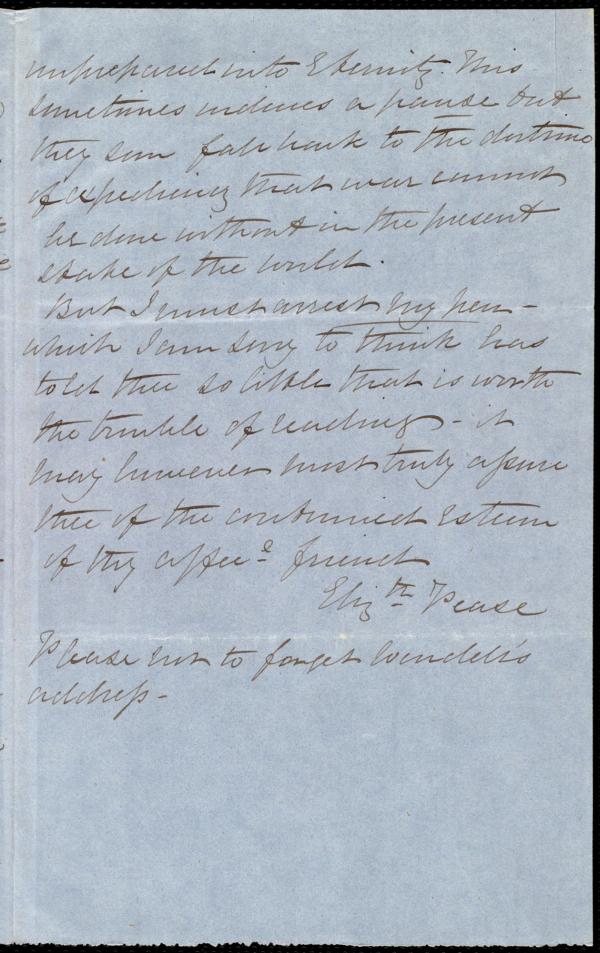 unprepared into Eternity. This
sometimes induces a pause but
they soon fall back to the doctrine
of expediency that war cannot
be done without in the present
state of the world.
But I must arrest my pen -
which I am sorry to think has
told thee so little that is worth
the trouble of reading - it
may however most truly assure
thee of the continued esteem
of thy affec.e friend
Eliz.th Pease
Please not to forget Wendell's
address -